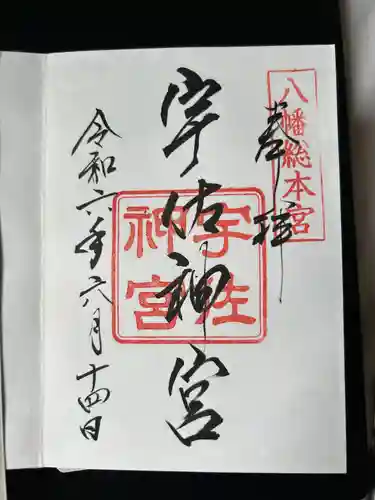 八幡総本宮
奉拝
宇佐神宮
宇佐
神宮
令和六年六月十四日